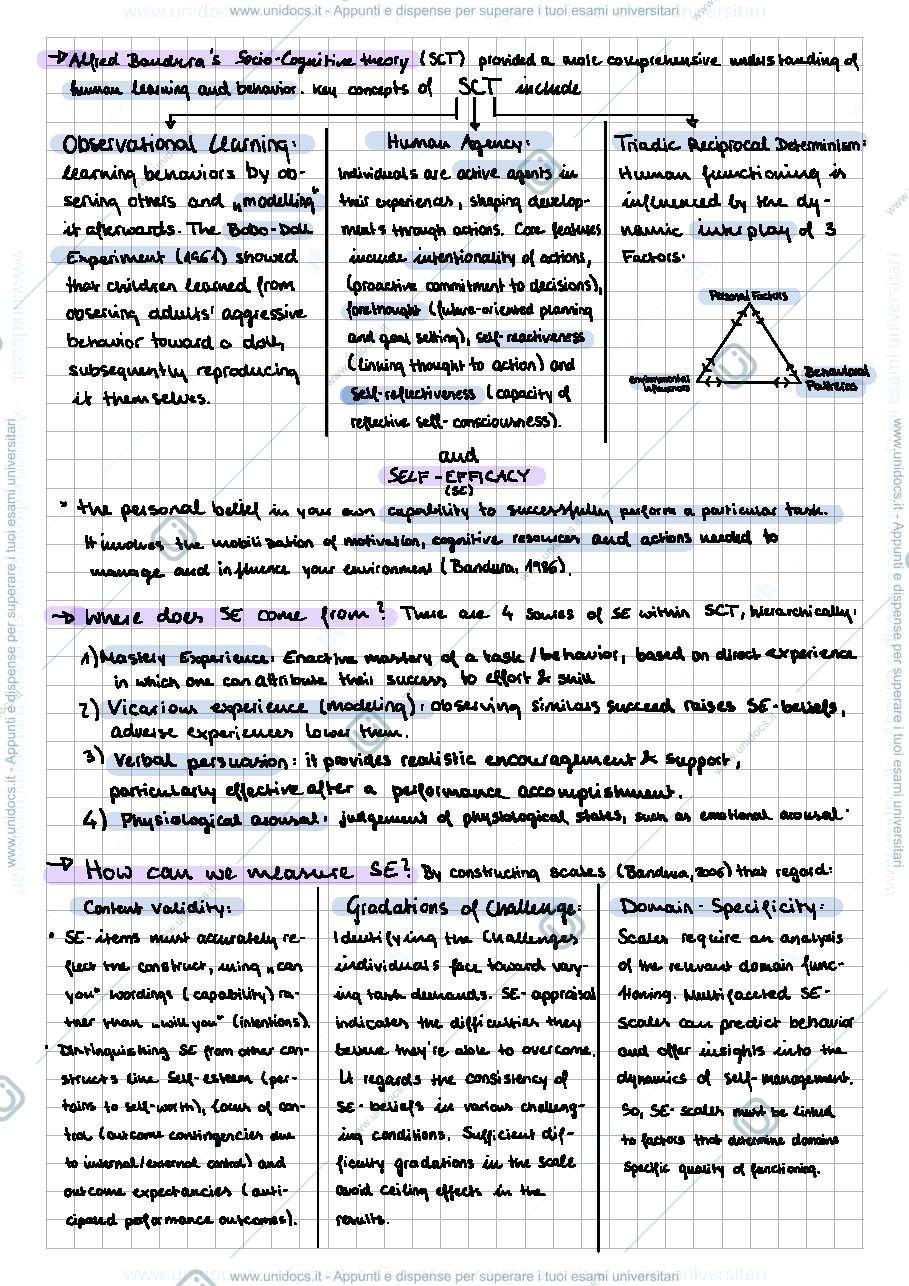 www.unidocs.it - Appunti e dispense per superare i tuoi esami universitari
→ Alfred Bandura's Socio-Cognitive theory (SCT) provided a more comprehensive understanding of
human learning and behavior. Key concepts of SCT include
Observational Learning:
learning behaviors by ob-
serving others and „modelling"
it afterwards. The Bobo-Doll
Experiment (1961) showed
that children learned from
observing adults' aggressive
behavior toward a doll,
subsequently reproducing
it themselves.
Human Agency:
Individuals are active agents in
their experiences, shaping develop-
ments through actions. Core features
include intentionality of actions,
(proactive commitment to decisions),
forethought (future-oriented planning
and goal setting), self-reactiveness
(linking thought to action) and
self-reflectiveness (capacity of
reflective self-consciousness).
Triadic Reciprocal Determinism:
Human functioning is
influenced by the dy-
namic interplay of 3
Factors.
Personal Factors
Environmental
Influences
Behavioral
Patterns
and
SELF-EFFICACY
(SE)
" the personal belief in your own capability to successfully perform a particular task.
It involves the mobilization of motivation, cognitive resources and actions needed to
manage and influence your environment (Bandura, 1986).
→ Where does SE come from? There are 4 sources of SE within SCT, hierarchically:
1) Mastery Experience: Enactive mastery of a task/behavior, based on direct experience
in which one can attribute their success to effort & skill
2) Vicarious experience (modeling): observing similars succeed raises SE-beliefs,
adverse experiences lower them.
3) Verbal persuasion: it provides realistic encouragement & support,
particularly effective after a performance accomplishment.
4) Physiological arousal: judgement of physiological states, such as emotional arousal.
→ How can we measure SE? By constructing scales (Bandura, 2006) that regard:
Content Validity:
• SE-items must accurately re-
flect the construct, using „can
you" wordings (capability) ra-
ther than „will you" (intentions).
• Distinguishing SE from other con-
structs like Self-esteem (per-
tains to self-worth), locus of con-
trol (outcome contingencies due
to internal/external control) and
outcome expectancies (anti-
cipated performance outcomes).
Gradations of Challenge:
Identifying the Challenges
individuals face toward vary-
ing task demands. SE-appraisal
indicates the difficulties they
believe they're able to overcome.
It regards the consistency of
SE-beliefs in various challeng-
ing conditions. Sufficient dif-
ficulty gradations in the scale
avoid ceiling effects in the
results.
Domain-Specificity:
Scales require an analysis
of the relevant domain func-
tioning. Multifaceted SE-
scales can predict behavior
and offer insights into the
dynamics of self-management.
So, SE-scales must be linked
to factors that determine domains
specific quality of functioning.
www.unidocs.it - Appunti e dispense per superare i tuoi esami universitari
www.unidocs.it - Appunti e dispense per superare i tuoi esami universitari
www.unidocs.it - Appunti e dispense per superare i tuoi esami universitari